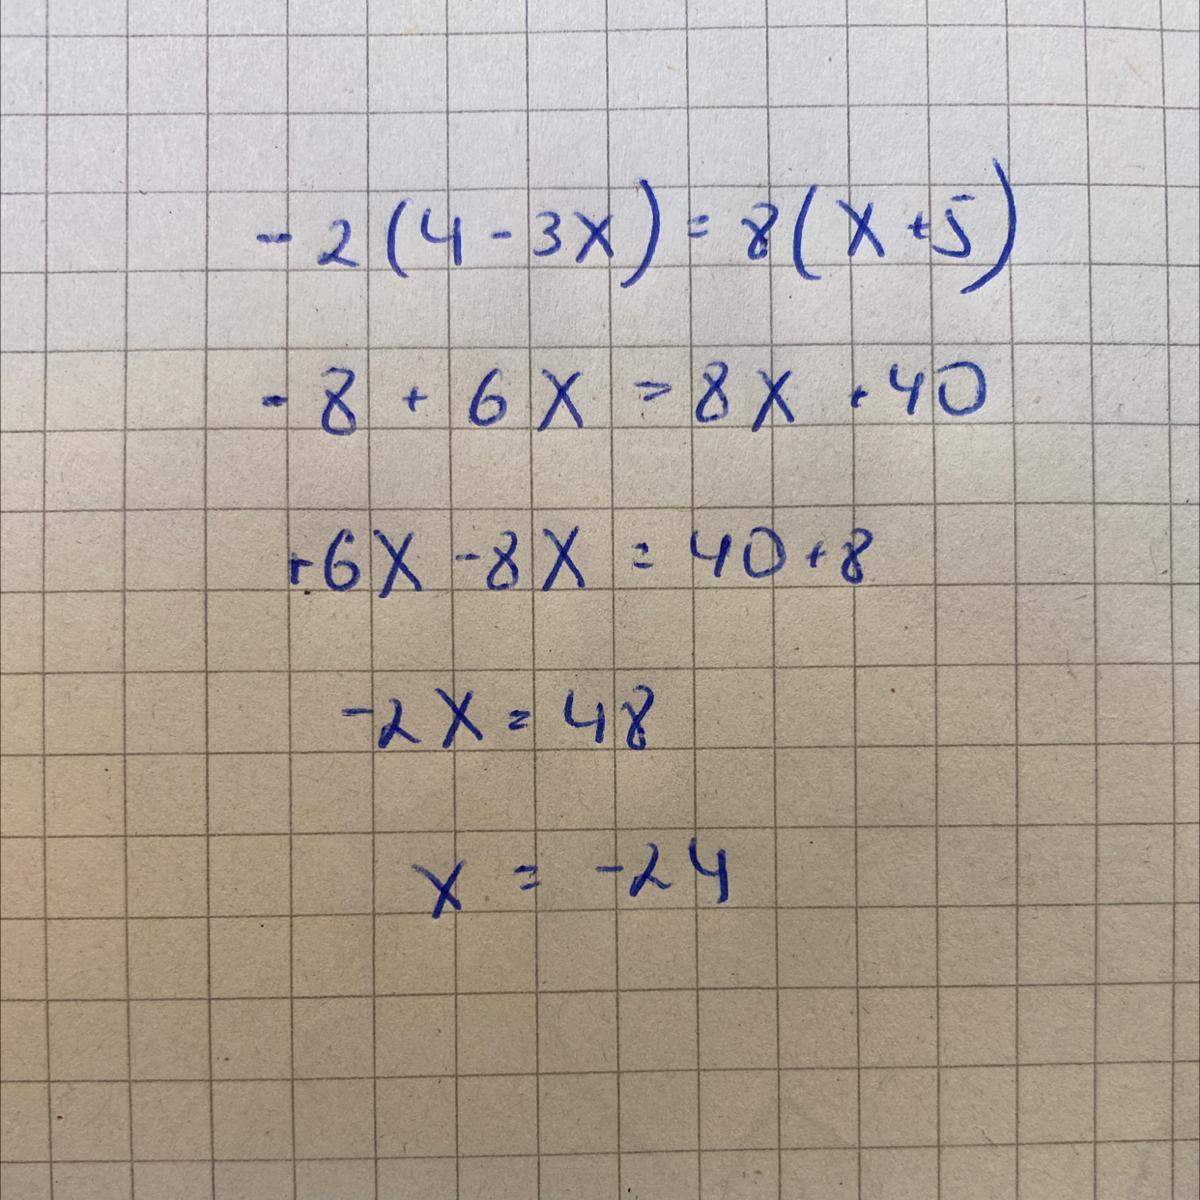 -2(4-3x)=8(x+5)
-8+6x=8x+40
+6x-8x=40+8
-2x=48
x=-24